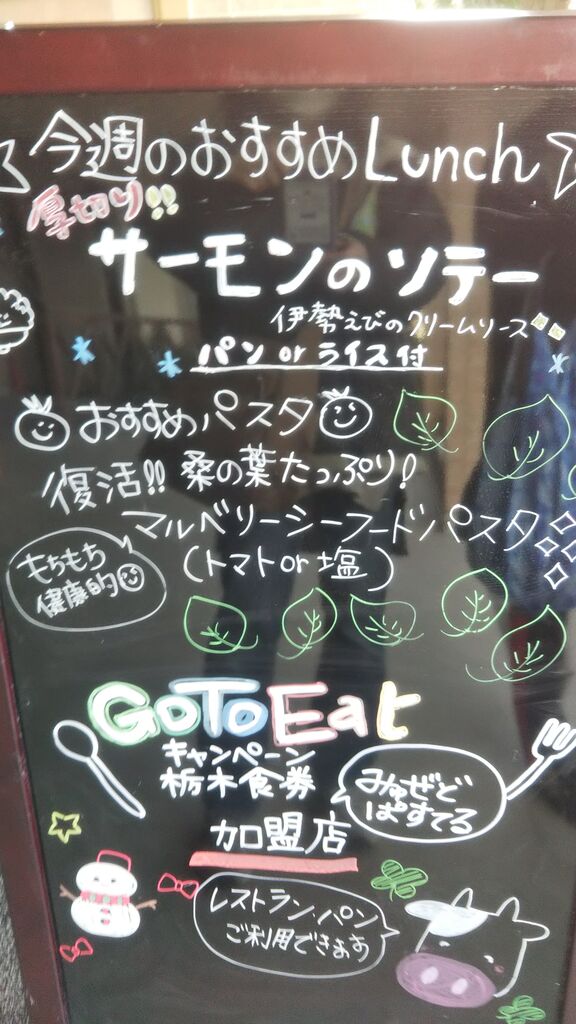 今週のおすすめLunch
厚切り!!
サーモンのソテー
伊勢えびのクリームソース
パンorライス付
おすすめパスタ
復活!! 桑の葉たっぷり!
マルベリーシーフードパスタ
(トマトor塩)
もちもち
健康的
GoToEat
キャンペーン
栃木食券
みゅぜど
ぱすてる
加盟店
レストラン、パン
ご利用できます